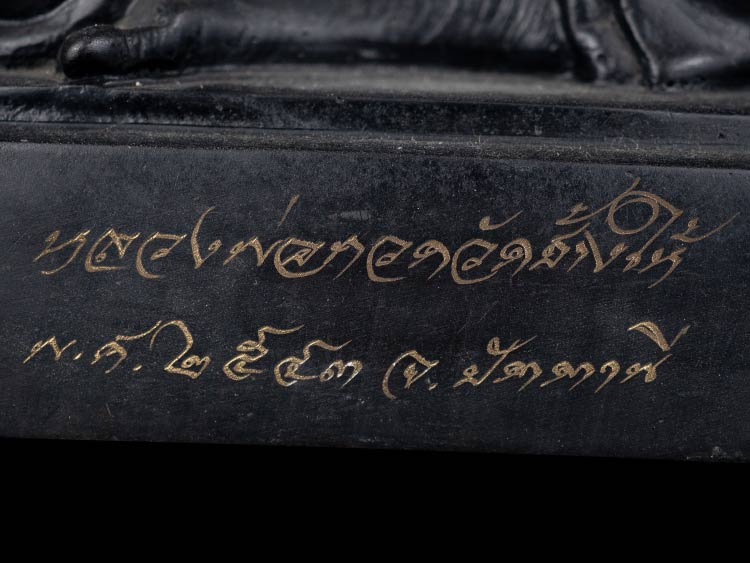 หลวงพ่อทวดวัดช้างให้
พ.ศ. ๒๕๔๓ จ. ปัตตานี